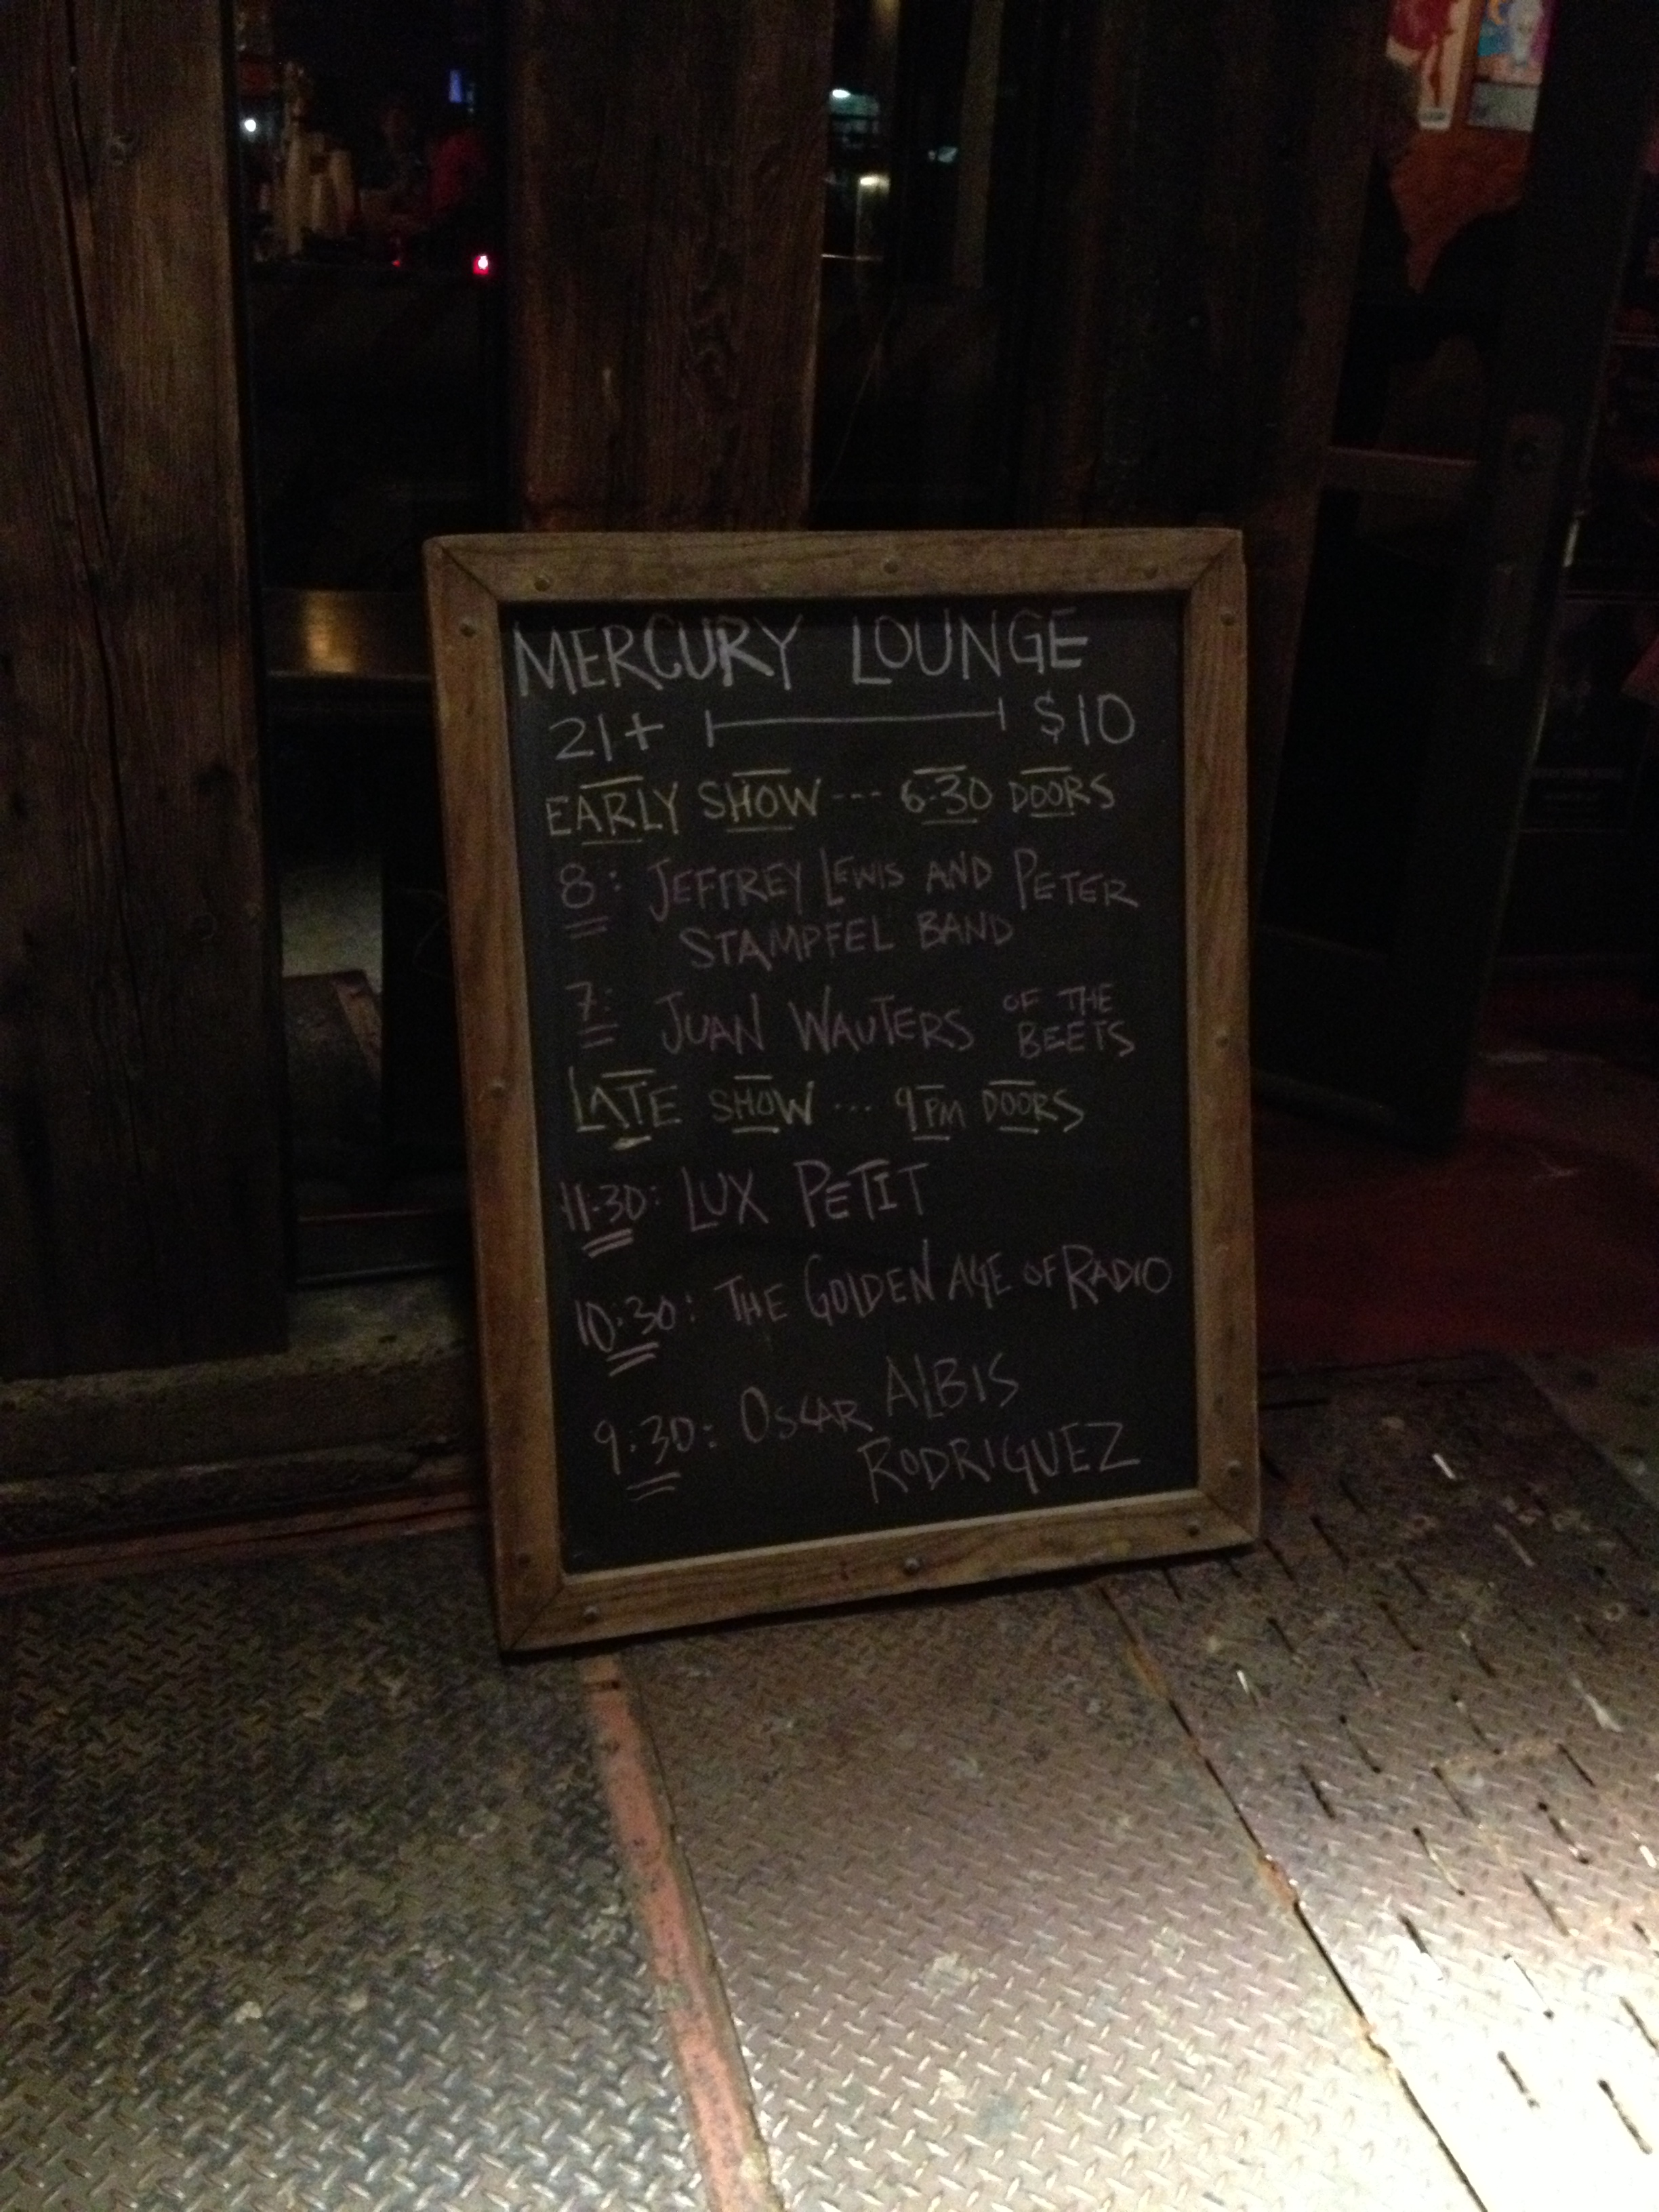 MERCURY LOUNGE
21+ $10
EARLY SHOW --- 6:30 DOORS
8: JEFFREY LEWIS AND PETER
STAMPFEL BAND
7: JUAN WAUTERS OF THE
BEETS
LATE SHOW --- 9PM DOORS
11:30: LUX PETIT
10:30: THE GOLDEN AGE OF RADIO
9:30: OSCAR ALBIS
RODRIGUEZ